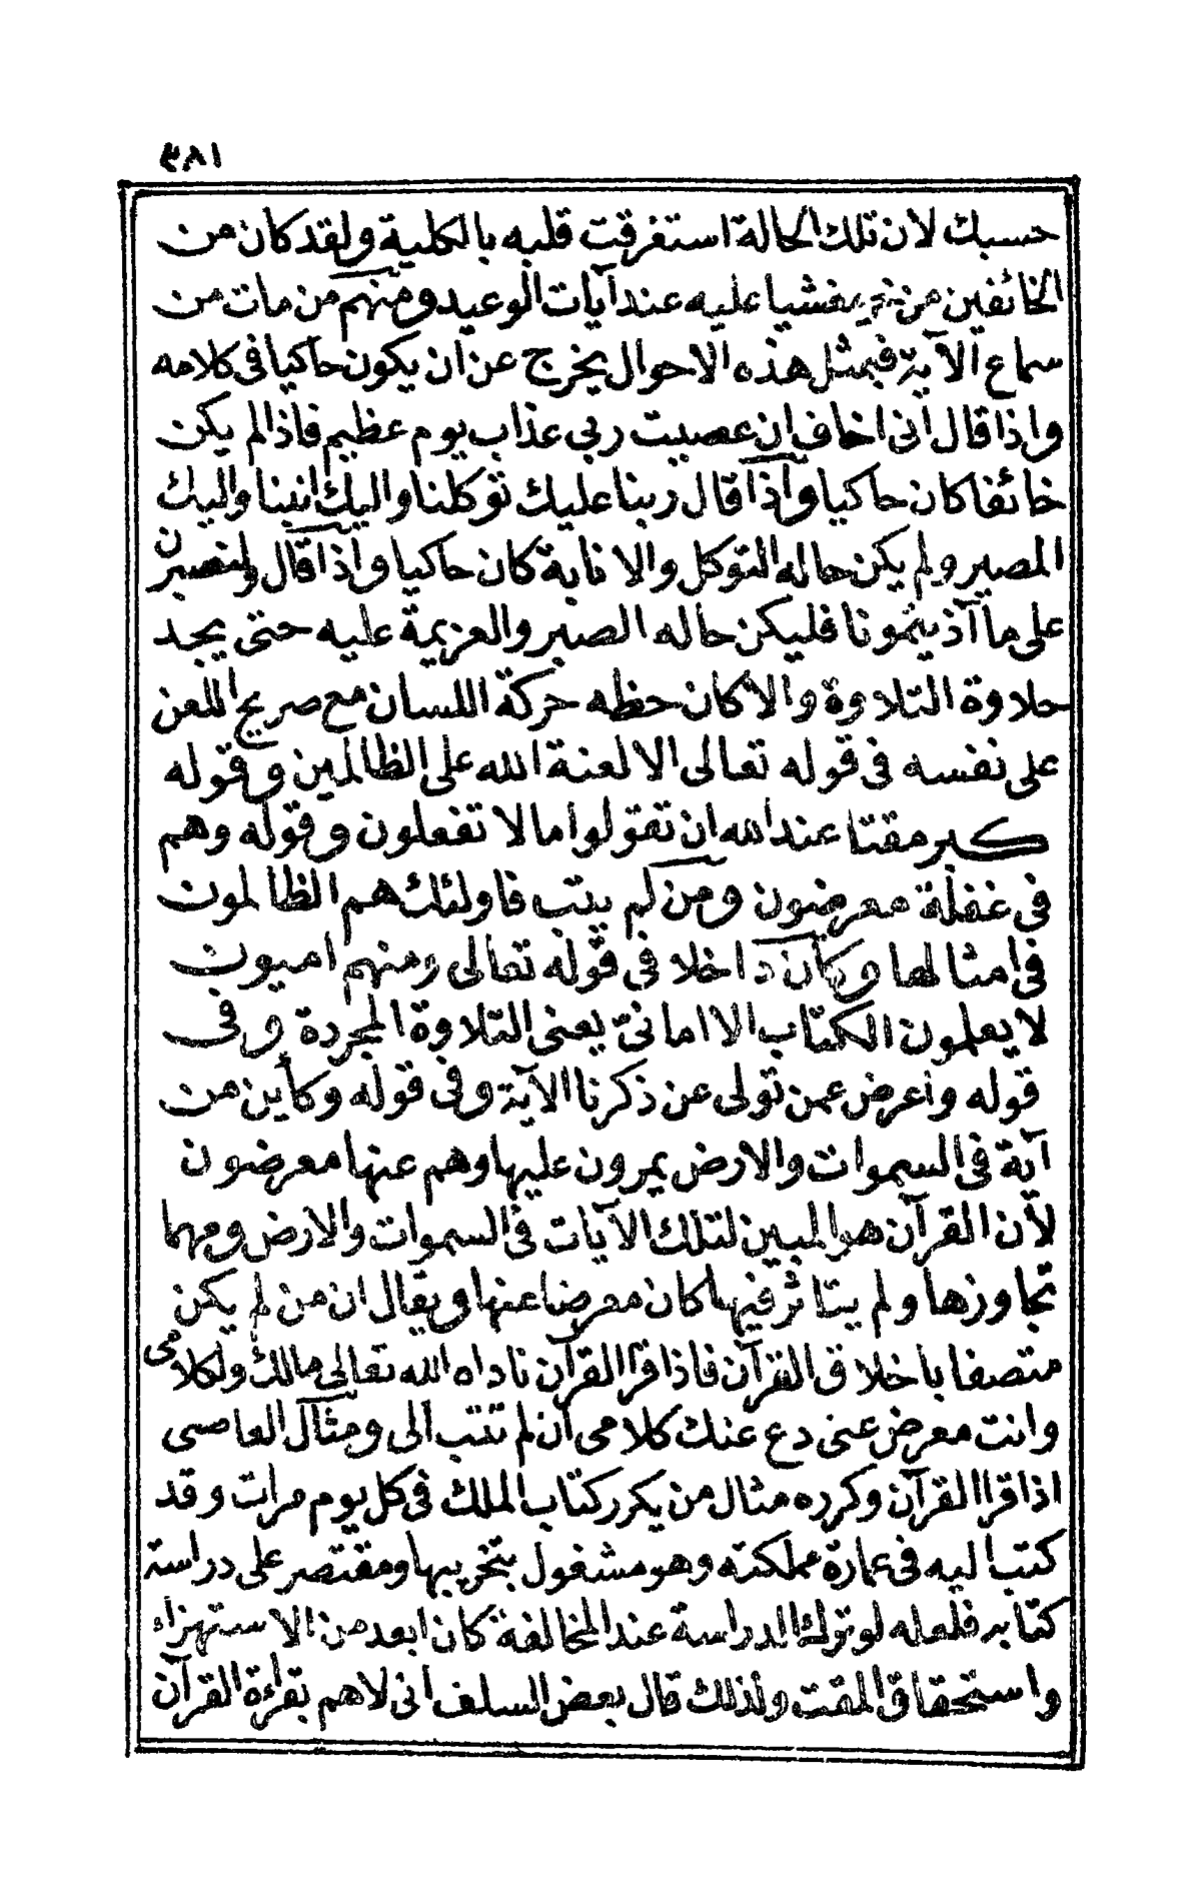 ٣٨١
حسبك لان تلك الحالة استغرقت قلبه بالكلية ولقد كان من
الخائفين من خر مغشيا عليه عند آيات الوعيد ومنهم من مات من
سماع الآية فبمثل هذه الاحوال يخرج عن ان يكون حاكيا فى كلامه
واذا قال انى اخاف ان عصيت ربى عذاب يوم عظيم فاذا لم يكن
خائفا كان حاكيا واذا قال ربنا عليك توكلنا واليك انبنا واليك
المصير ولم يكن حاله التوكل والانابة كان حاكيا واذا قال ولنصبرن
على ما آذيتمونا فليكن حاله الصبر والعزيمة عليه حتى يجد
حلاوة التلاوة والا كان حظه حركة اللسان مع صريح اللعن
على نفسه فى قوله تعالى الا لعنة الله على الظالمين وقوله
كبر مقتا عند الله ان تقولوا ما لا تفعلون وقوله وهم
فى غفلة معرضون ومن لم يتب فاولئك هم الظالمون
فى امثالها وكان داخلا فى قوله تعالى ومنهم اميون
لا يعلمون الكتاب الا امانىّ يعنى التلاوة المجردة وفى
قوله واعرض عمن تولى عن ذكرنا الآية وفى قوله وكأين من
آية فى السموات والارض يمرون عليها وهم عنها معرضون
لأن القرآن هو المبين لتلك الآيات فى السموات والارض ومهما
تجاوزها ولم يتاثر فيها كان معرضا عنها ويقال ان من لم يكن
متصفا باخلاق القرآن فاذا قرا القرآن ناداه الله تعالى مالك ولكلامى
وانت معرض عنى دع عنك كلامى ان لم تتب الى ومثال العاصى
اذا قرا القرآن وكرره مثال من يكرر كتاب الملك فى كل يوم مرات وقد
كتب اليه فى عمارة مملكته وهو مشغول بتخريبها ومقتصر على دراسة
كتابه فلعله لو ترك الدراسة عند المخالفة كان ابعد من الاستهزاء
واستحقاق المقت ولذلك قال بعض السلف انى لاهم بقراءة القرآن